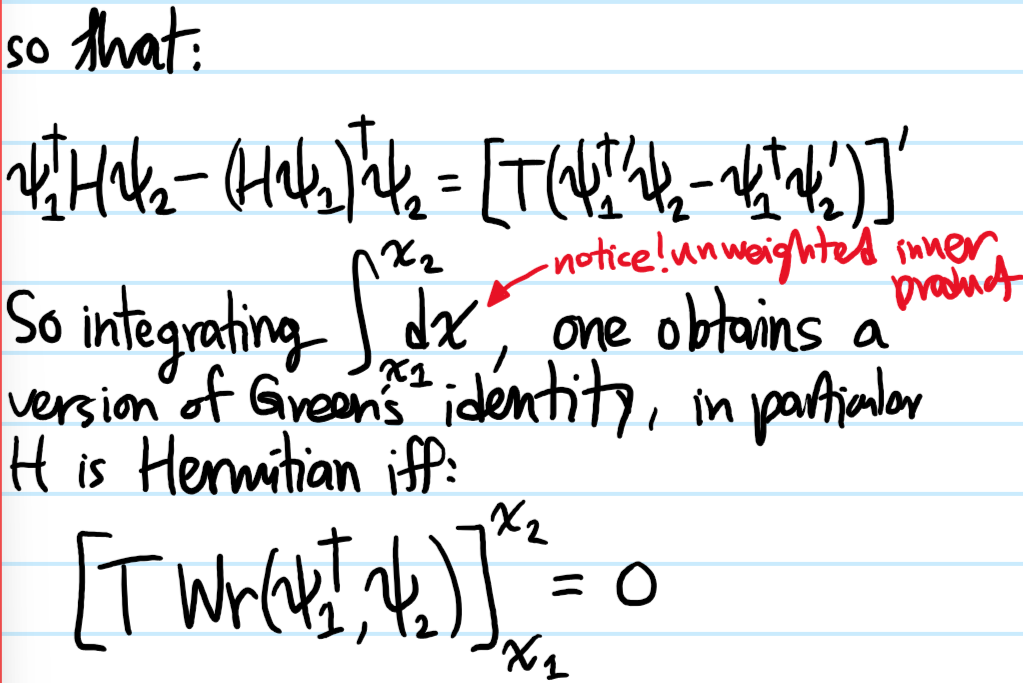 so that:
ψ₁†Hψ₂ - (Hψ₁)†ψ₂ = [T(ψ₁†'ψ₂ - ψ₁†ψ₂')]'
notice! unweighted inner product
So integrating ∫_{x₁}^{x₂} dx, one obtains a
version of Green's identity, in particular
H is Hermitian iff:
[T Wr(ψ₁†, ψ₂)]_{x₁}^{x₂} = 0